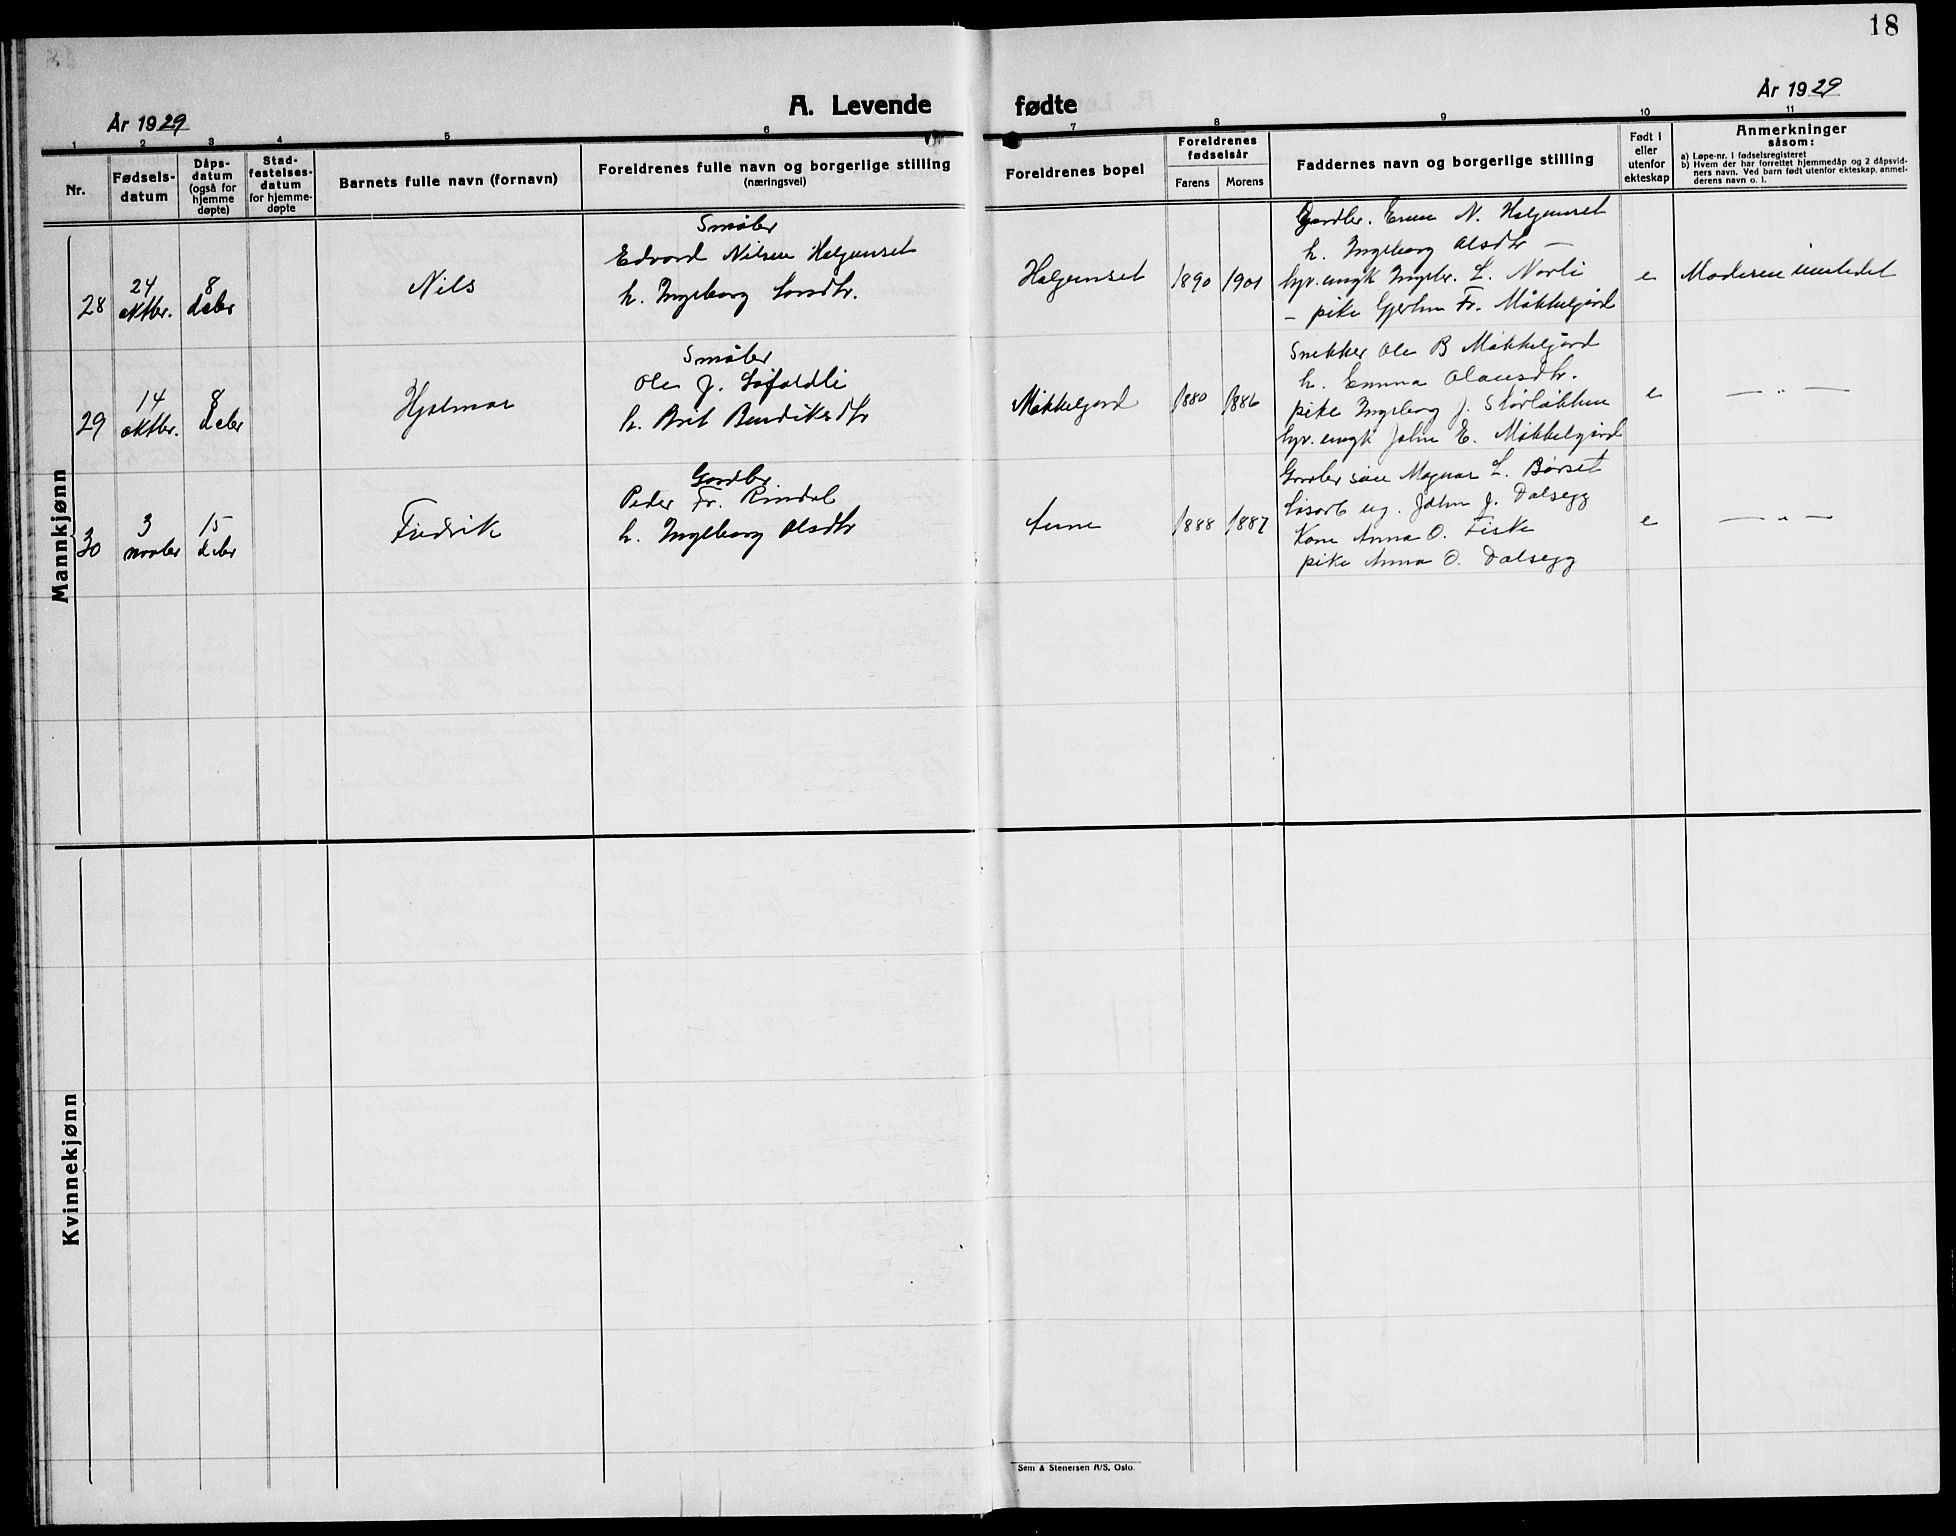 18
År 1929
A. Levende fødte
År 1929
1 2 3 4 5 6 7 8 9 10 11
Nr.
Fødsels-
datum
Dåps-
datum
(også for
hjemme
døpte)
Stad-
festelses-
datum
for hjemme-
døpte
Barnets fulle navn (fornavn)
Foreldrenes fulle navn og borgerlige stilling
(næringsvei)
Foreldrenes bopel
Foreldrenes
fødselsår
Farens Morens
Faddernes navn og borgerlige stilling
Født i
eller
utenfor
ekteskap
Anmerkninger
såsom:
a) Løpe-nr. i fødselsregisteret
b) Hvem der har forrettet hjemmedåp og 2 dåpsvid-
ners navn. Ved barn født utenfor ekteskap, anmel-
derens navn o. l.
Mannkjønn
28
24
oktbr.
8
decbr
Nils
Småbr
Edvard Nilsen Halgunset
h. Ingeborg Larsdtr.
Halgunset
1890 1901
Gardbr. Einar N. Halgunset
h. Ingeborg Olsdtr —
Gbr. L. Norli
— pike Gjertine Fr. Mikkelgård
e
Moderen innledet
29
14
oktbr.
8
decbr
Hjalmar
Småbr
Ole J. Løfaldli
h. Brit Bendiksdtr
Mikkelgard
1880 1886
Snekker Ole B Mikkelgård
h. Emma Olausdtr.
pike Ingeborg J. Storløkken
John E. Mikkelgård
e
— " —
30
3
novbr
15
decbr
Fredrik
Gardbr
Peder Fr. Rindal
h. Ingeborg Olsdtr
1888 1887
Gardbr søn Magnar L. Børset
ug. John J. Dalsegg
Kone Anna O. Fiske
pike Anna O. Dalsegg
e
— " —
Kvinnekjønn
Sem & Stenersen A/S, Oslo.